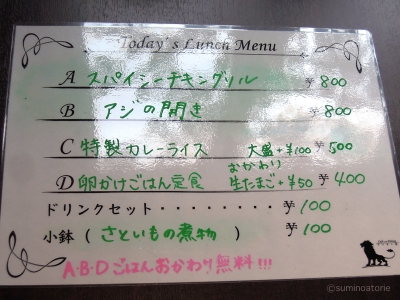 Today's Lunch Menu
A スパイシーチキングリル ¥800
B アジの開き ¥800
C 特製カレーライス 大盛+¥100 ¥500
おかわり
D 卵かけごはん定食 生たまご+¥50 ¥400
ドリンクセット・・・・・・・・¥100
小鉢 ( さといもの煮物 ) ¥100
A・B・Dごはんおかわり無料!!!
©suminoatorie